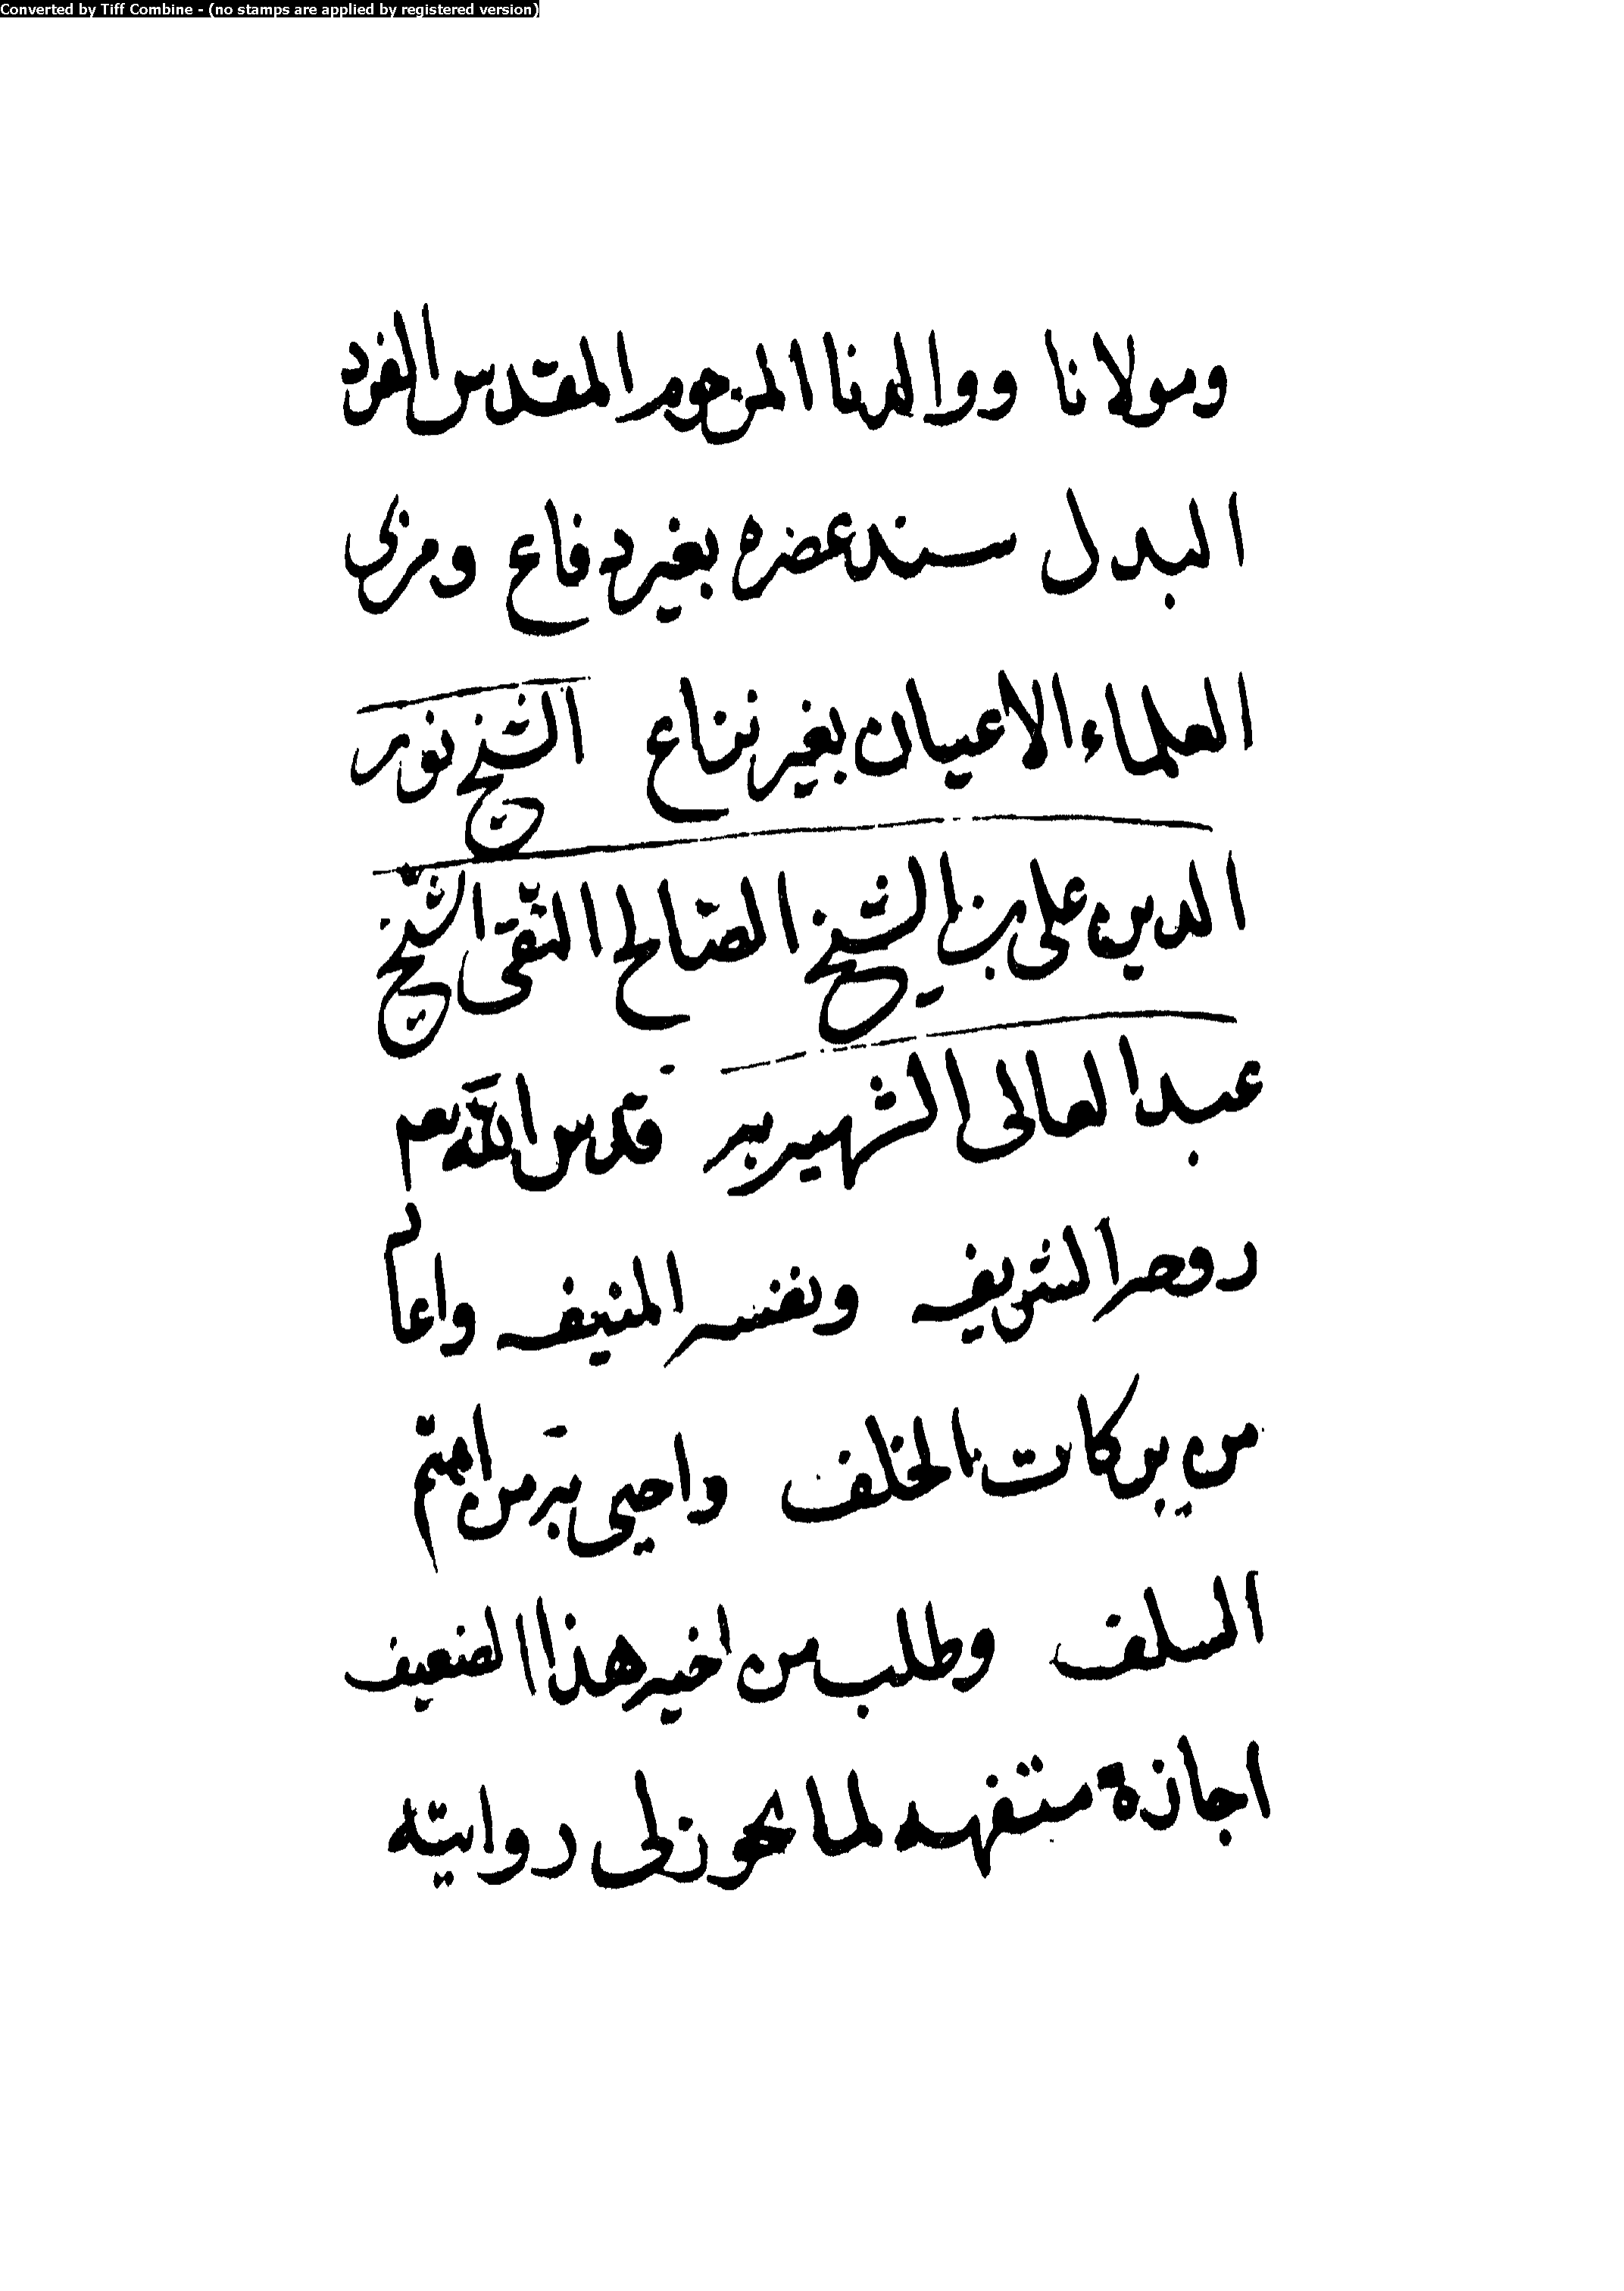 Converted by Tiff Combine - (no stamps are applied by registered version)
ومولانا ووالدنا المرحوم المقدس الفرد
البدل سند عصره بغير دفاع ومربي
العلماء الاعيان بغير نزاع الشيخ نور
الدين علي بن الشيخ الصّالح التّقى الشيخ
عبد العالى الشهير بـ قدس الله
روحه الشريفه ونفسه المنيفه واعا
من بركات الخلف واحيى به من
السلف وطلب من اخيه هذا الضعيف
اجازة متضمنه لما يجوز لى روايته